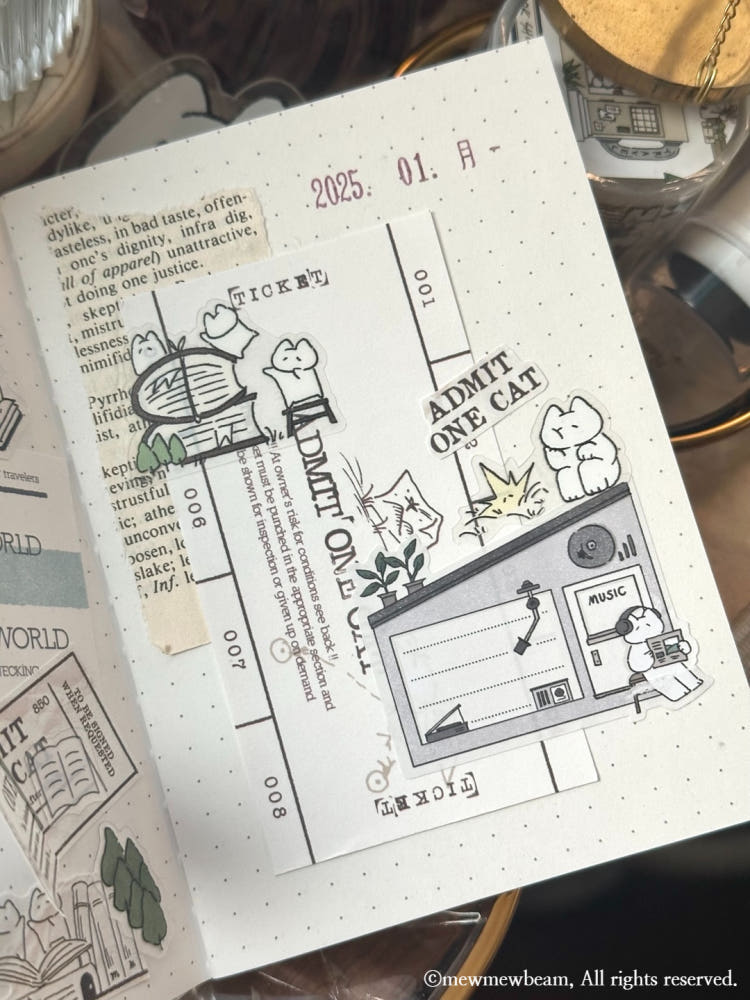 2025. 01. 月 -
dylike,
asteless, in bad taste, offen-
one's dignity, infra dig,
ll of apparel) unattractive,
t doing one justice.
skept
mistru
lessness
nimifid
Pyrrh
lifidia
ist, at
kepti
eving,
strustful
ic; athe
unconv
posen, lo
slake; le
Inf. le
[TICKET]
001
ADMIT
ONE CAT
ADMIT ONE CAT
!! At owner's risk for conditions see back !!
et must be punched in the appropriate section and
be shown for inspection or given up on demand
006
007
008
MUSIC
[TICKET]
travelers
ORLD
WORLD
850
TO BE SIGNED
WHEN REQUESTED
MIT
CAT
©mewmewbeam, All rights reserved.